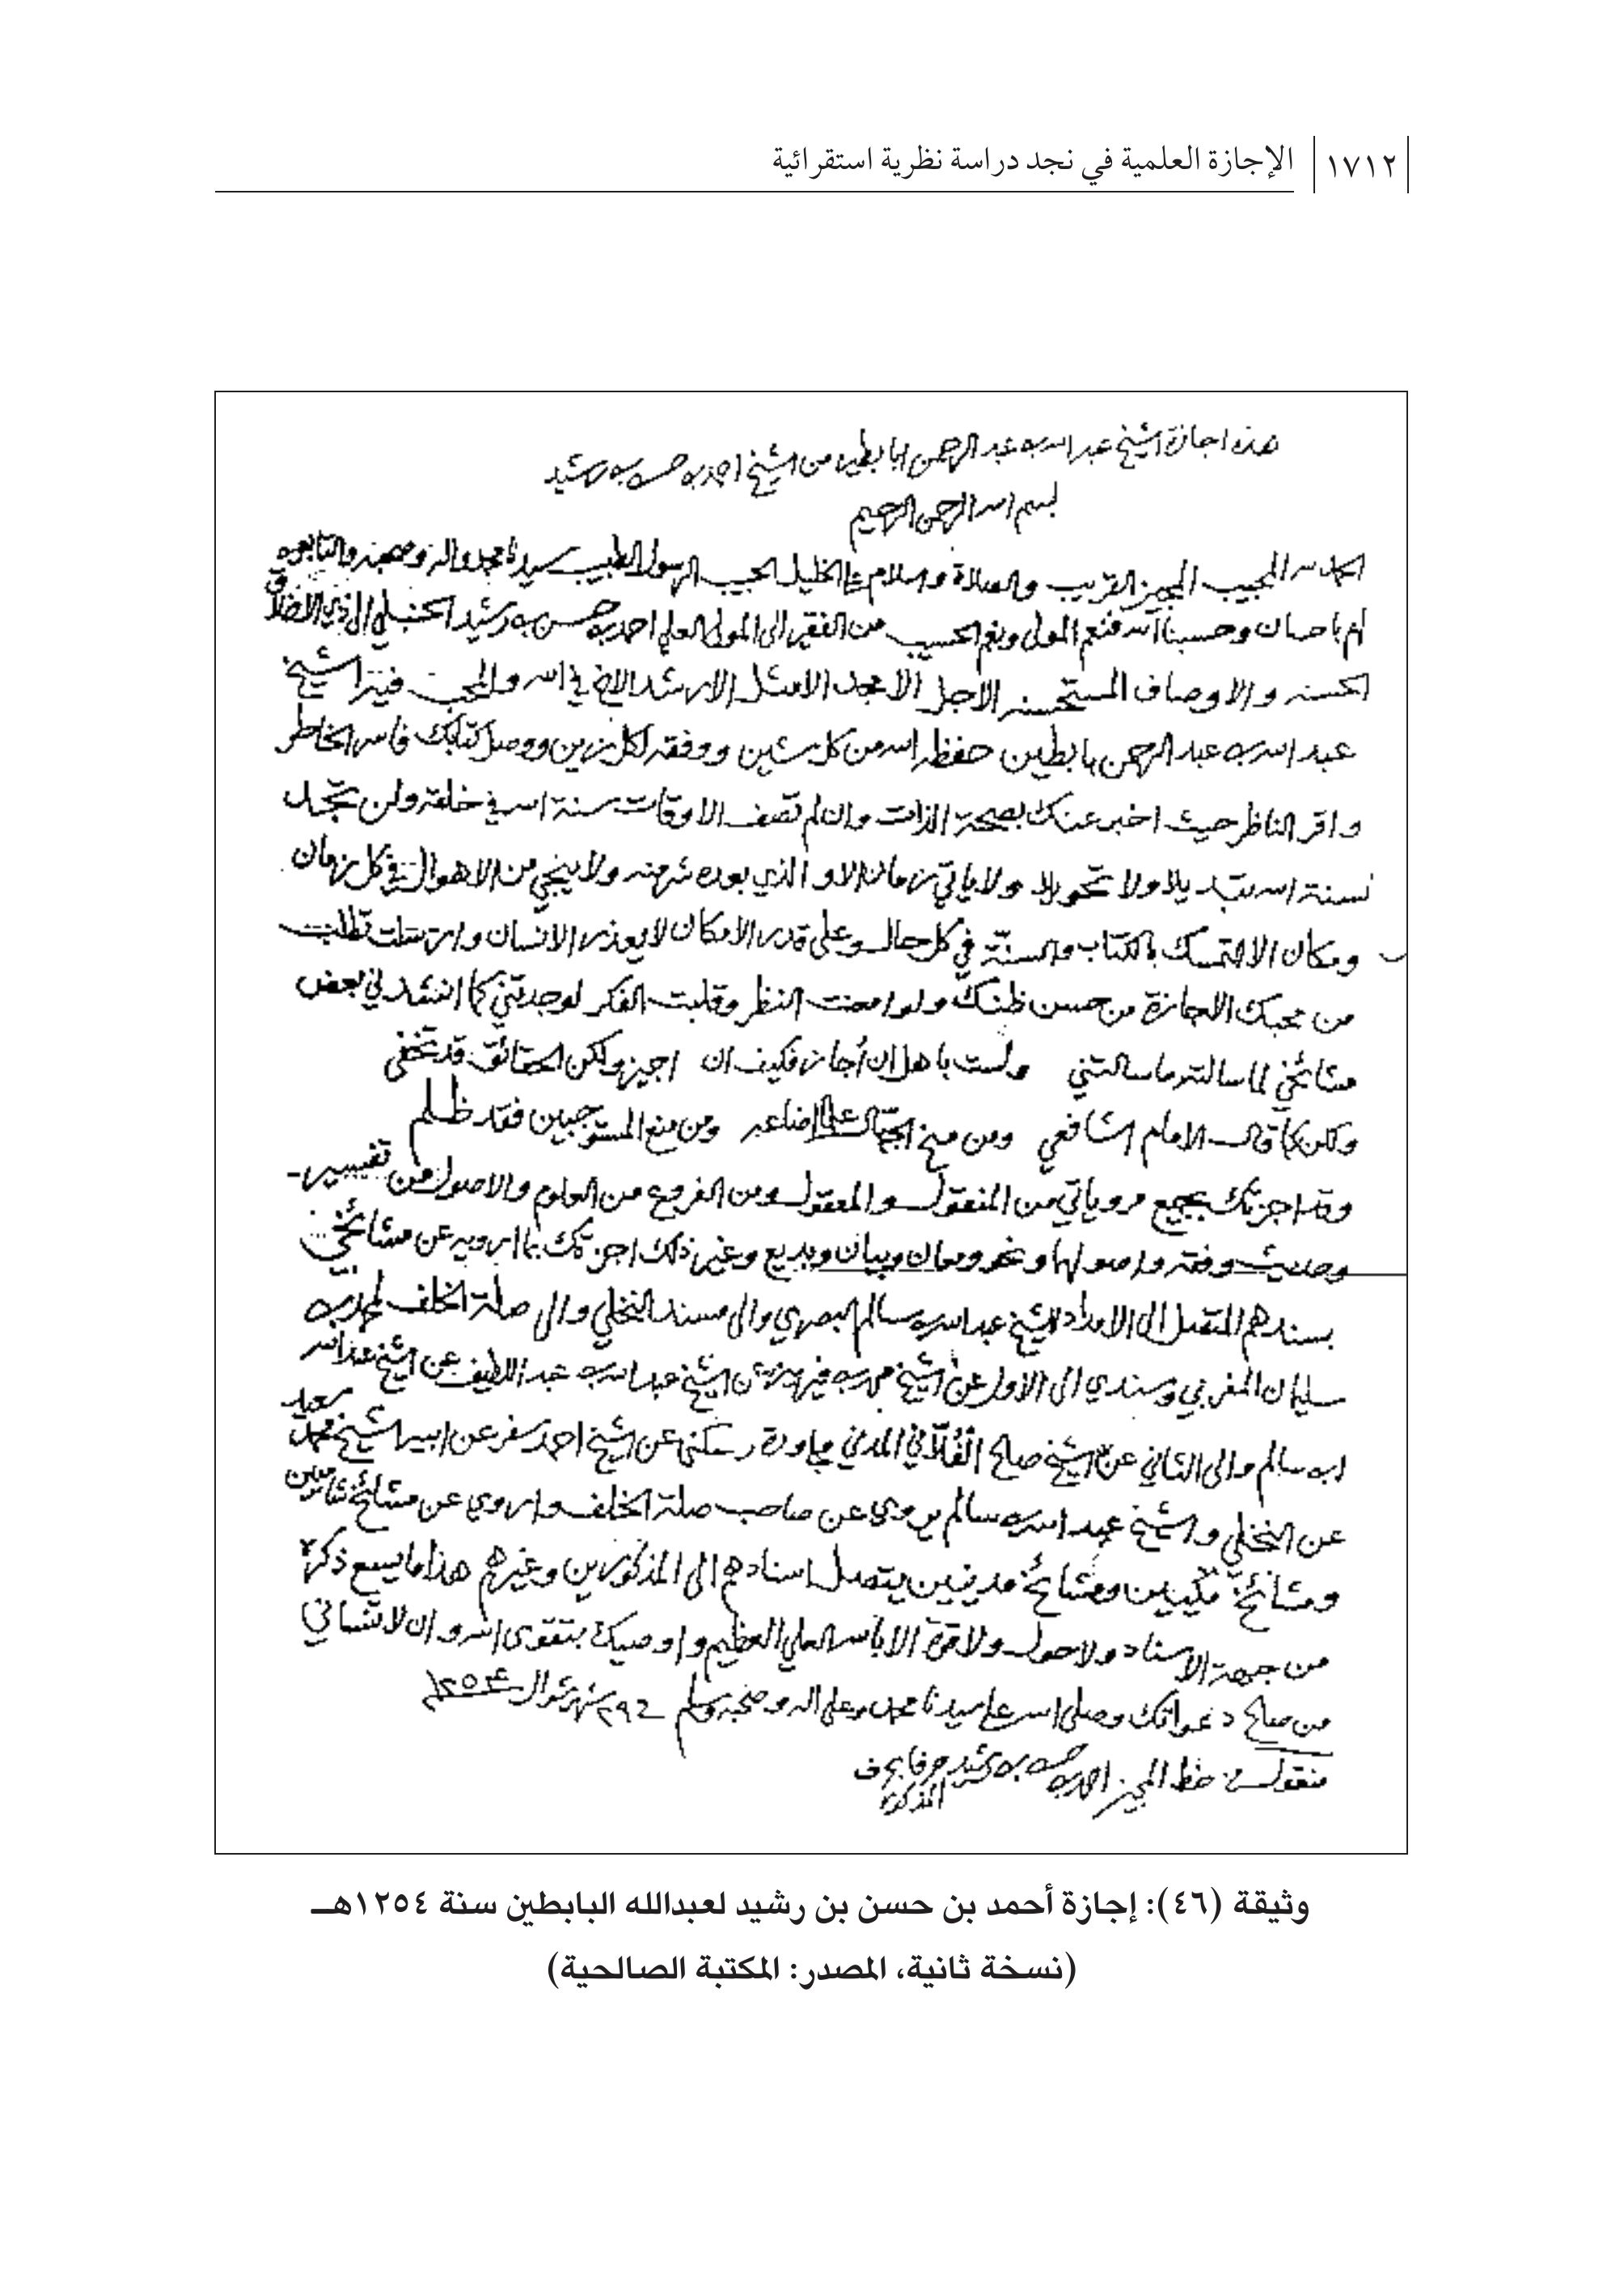 ١٧١٢ الإجازة العلمية في نجد دراسة نظرية استقرائية
هذه اجازة الشيخ عبد الله بن عبد الرحمن ابابطين من الشيخ احمد بن حسن بن رشيد
بسم الله الرحمن الرحيم
الحمد لله المجيب المجيز القريب والصلاة والسلام على الخليل الحبيب الرسول الطيب سيدنا محمد واله وصحبه والتابعين
لهم باحسان وحسبنا الله فنعم المولى ونعم الحسيب من الفقير الى المولى العلي احمد بن حسن بن رشيد الحنبلي الى ذي الاخلاق
الحسنه والاوصاف المستحسنه الاجل الامجد الامثل الارشد الاخ في الله والمحب فيه الشيخ
عبد الله بن عبد الرحمن بابطين حفظه الله من كل شين ووفقه لكل زين ووصل كتابك فاسر الخاطر
واقر الناظر حيث اخبر عنك بصحة الذات وان لم تصف الاوقات سنة الله في خلقه ولن تجد
لسنة الله تبديلا ولا تحويلا ولا ياتي زمان الا والذي بعده شر منه ولا ينجي من الاهوال في كل زمان
ومكان الا التمسك بالكتاب والسنة في كل حال وعلى قدر الامكان لا يعذر الانسان وارسلت تطلب
من محبك الاجازة من حسن ظنك ولو امعنت النظر وقلبت الفكر لوجدتني كما انشدني بعض
مشائخي لما سالته ما سالتني ولست باهل ان أجاز فكيف ان اجيز ولكن الحقائق قد تخفى
ولكن كما قال الامام الشافعي ومن منح الجهال علما اضاعه ومن منع المستوجبين فقد ظلم
وقد اجزتك بجميع مروياتي من المنقول والمعقول ومن الفروع من العلوم والاصول من تفسير
وحديث وفقه واصولها ونحو ومعان وبيان وبديع وغير ذلك اجزتك بما ارويه عن مشائخي
بسندهم المتصل الى الامداد للشيخ عبد الله بن سالم البصري والى مسند النخلي والى صلة الخلف لمحمد بن
سليمان المغربي وسندي الى الاول عن الشيخ محمد بن فيروز عن الشيخ عبد الله بن عبد اللطيف عن الشيخ عبد الله
ابن سالم والى الثاني عن الشيخ صالح الفُلّاني المدني مجاورة وسكنى عن الشيخ احمد سفر عن ابيه الشيخ محمد سعيد
عن النخلي والشيخ عبد الله بن سالم يروي عن صاحب صلة الخلف واروي عن مشائخ شاميين
ومشائخ مكيين ومشائخ مدنيين يتصل اسنادهم الى المذكورين وغيرهم هذا ما يسع ذكره
من جهة الاسناد ولا حول ولا قوة الا بالله العلي العظيم واوصيك بتقوى الله وان لا تنساني
من صالح دعواتك وصلى الله على سيدنا محمد وعلى اله وصحبه وسلم ٢٩ شهر شوال ١٢٥٤
منقول من خط المجيز احمد بن حسن بن رشيد حرفا بحرف
المذكور
وثيقة (٤٦): إجازة أحمد بن حسن بن رشيد لعبدالله البابطين سنة ١٢٥٤هـ
(نسخة ثانية، المصدر: المكتبة الصالحية)